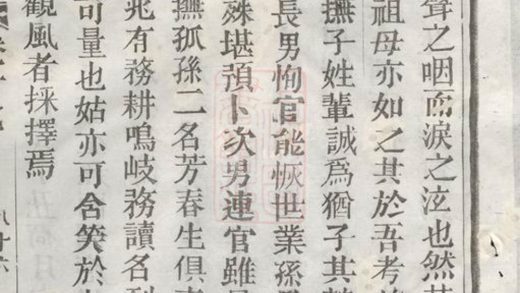 聲之咽而淚之泣也然其
祖母亦如之其於吾考
撫子姓輩誠爲猶子其
長男恂官能恢世業孫
殊堪預卜次男連官雖
撫孤孫二名芳春生俱
兆有務耕鳴岐務讀名列
可量也姑亦可含笑於
觀風者採擇焉